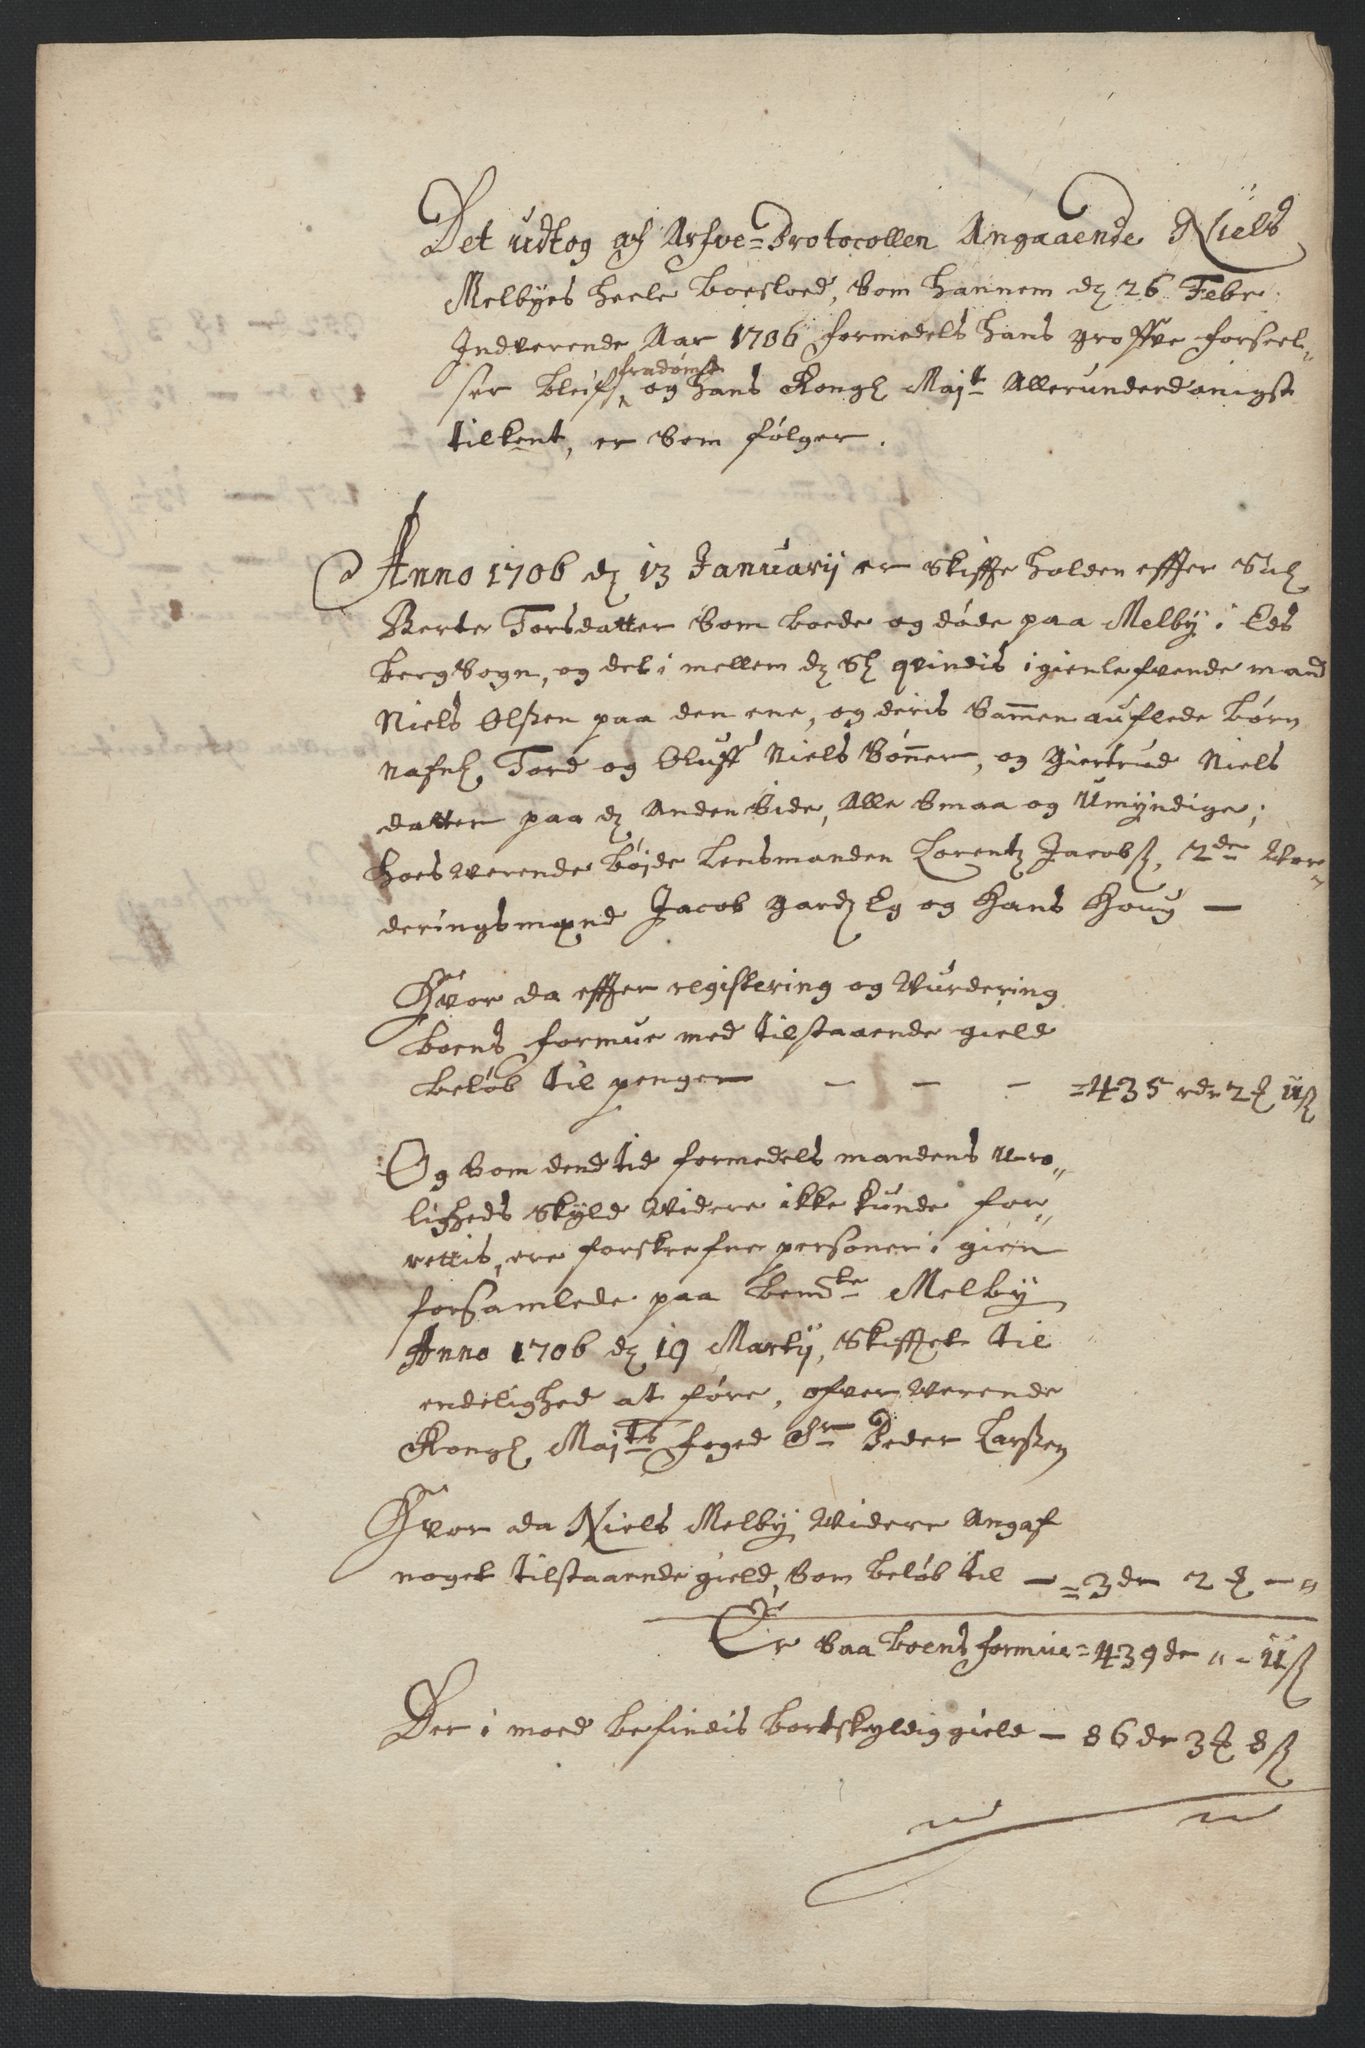 Det udtog af Arfve-Protocollen Angaaende Niels
Melbyes heele boeslod, som hannem dz 26 Febr:
Indverende Aar 1706 formedels hans groffve forseel-
ser bleif fradømt og hans Kongl Majt Allerunderdanigst
tilkent, er som følger.
Anno 1706 dz 13 Januarij er skiffte holden effter Sal
Berte Torsdatter som boede og døde paa Melby i Eds
berg Sogn, og det i mellem dz Sl qvindis igienlefvende mand
Niels Olszen paa den ene, og deris sammen auflede børn
nafnl Tord og Oluff Niels Sønner, og Giertrud Niels
datter paa dz anden side, alle smaa og umyndige;
hoes verende bøjde Lensmanden Lorentz Jacobß, 2de Vor-
deringsmænd Jacob Gardz Eg og Hans Houg —
Hvor da effter registering og Vurdering
boens formue med tilstaaende gield
beløb til penger — — — =435 rdr 2 ʒ 11 ß
Og som dend tid formedels mandens uro-
ligheds skyld videre ikke kunde for-
rettis, ere forskrefne personer i gien
forsamlede paa bemte Melby
Anno 1706 dz 19 Martij, skifftet til
endelighed at føre, ofververende
Kongl Majts foged Sr Peder Larszen
Hvor da Niels Melby videre angaf
noget tilstaaende gield, som beløb til — = 3 dr 2 ʒ — "
Er saa boens formue = 439 dr " - 11 ß
Der i moed befindis bortskyldig gield — 86 dr 3 ʒ 8 ß